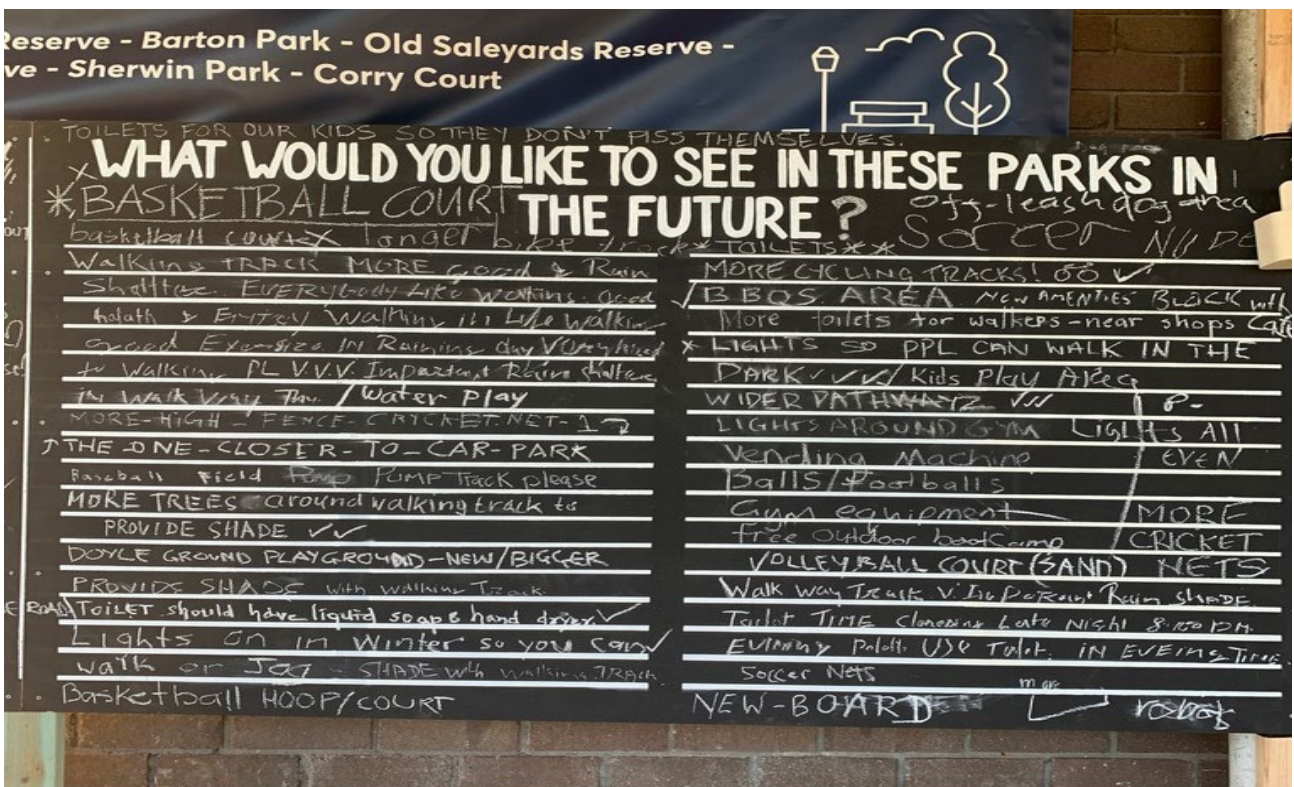 Reserve - Barton Park - Old Saleyards Reserve -
ve - Sherwin Park - Corry Court
TOILETS FOR OUR KIDS SO THEY DON'T PISS THEMSELVES.
WHAT WOULD YOU LIKE TO SEE IN THESE PARKS IN
THE FUTURE?
*BASKETBALL COURT
off-leash dog area
basketball court longer bike track
Walking TRACK MORE good & Rain
EVERYbody Like walking good
& Walking in Life walking
good IN Raining day
to walking PL V.V.V. Important
in walk /Water Play
MORE-HIGH-FENCE-CRYCKET.NET-1
↑THE-ONE-CLOSER-TO-CAR-PARK
Baseball field Pump PUMP Track please
MORE TREES around walking track to
PROVIDE SHADE ✓✓
DOYLE GROUND PLAYGROUND-NEW/BIGGER
PROVIDE SHADE with walking Track
TOILET should have liquid soap & hand dryer ✓
Lights on in Winter so you can ✓
walk or Jog - SHADE with walking TRACK
Basketball HOOP/COURT
* TOILETS** Soccer
MORE CYCLING TRACKS! ✓
✓ BBQS AREA NEW AMENTIES BLOCK with
More toilets for walkers-near shops Cafe
* LIGHTS SO PPL CAN WALK IN THE
DARK ✓✓✓/Kids Play Area
WIDER PATHWAYZ ✓✓
LIGHTS AROUND GYM LIGHTS All
Vending Machine EVEN
Balls/footballs
Gym equipment MORE
free outdoor bootcamp CRICKET
VOLLEYBALL COURT (SAND) NETS
Walk way Track V. Rain SHADE
TIME Late Night
Use Toilet. IN
Soccer Nets
NEW-BOARD more